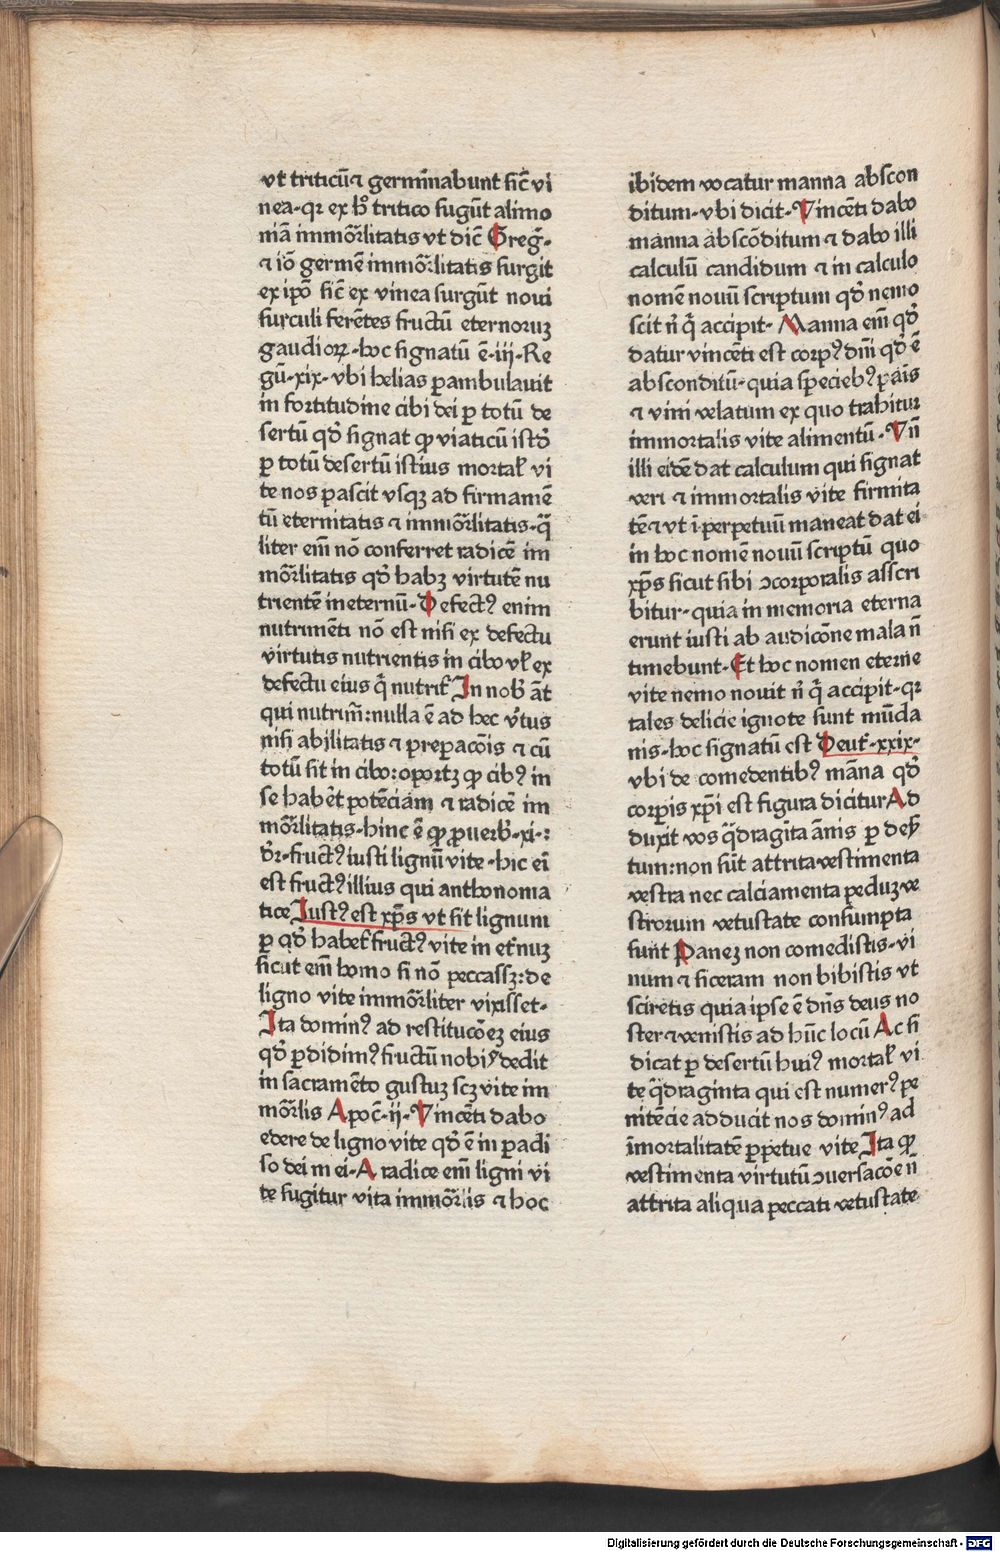 vt triticū ⁊ germīnabunt sic̄ vi
nea·qꝛ ex hº tritico sugūt alimo
niā immor̄litatis vt dic̄ Greg̅·
⁊ iō germē immor̄litatis surgit
ex ip̄o sic̄ ex vinea surgūt noui
surculi ferētes fructū eternoruꝫ
gaudioꝝ·hoc signatū ē·iij·Re
gū·xix·vbi helias ꝑambulauit
in fortitudine cibi dei ꝑ totū de
sertū qd̕ signat ꝙ viaticū istd̕
ꝑ totū desertū istius mortal̕ vi
te nos pascit vsqꝫ ad firmamē
tū eternitatis ⁊ immor̄litatis·q̄
liter em̄ nō conferret radicē im
mor̄litatis qd̕ habꝫ virtutē nu
trientē in eternū·Defectꝰ enim
nutrimēti nō est nisi ex defectu
virtutis nutrientis in cibo vl̕ ex
defectu eius q̄ nutrit̕ In nob̕ āt
qui nutrim̄:nulla ē ad hec v̕tus
nisi abilitatis ⁊ preparacōis ⁊ cū
totū sit in cibo:oportꝫ ꝙ cibꝰ in
se habēt potēciam ⁊ radicē im
mor̄litatis·hinc ē ꝙ ꝓuerb̕·xi·:
dr̄·fructꝰ iusti lignū vite·hic ei
est fructꝰ illius qui anthonoma
tice Iustꝰ est xp̄s vt sit lignum
ꝑ qd̕ habet̕ fructꝰ vite in et̕nuꝫ
sicut em̄ homo si nō peccassꝫ:de
ligno vite immor̄liter vixisset·
Ita dominꝰ ad restitucōeꝫ eius
qd̕ ꝑdidimꝰ fructū nobꝭ dedit
in sacramēto gustuꝫ scꝫ vite im
mor̄lis Apoc̄·ij·Vincēti dabo
edere de ligno vite qd̕ ē in paradi
so dei mei·A radice em̄ ligni vi
te sugitur vita immor̄lis ⁊ hoc
ibidem vocatur manna abscon
ditum·vbi dicit·Vincēti dabo
manna abscōditum ⁊ dabo illi
calculū candidum ⁊ in calculo
nomē nouū scriptum qd̕ nemo
scit n̄ q̄ accipit·Manna em̄ qd̕
datur vincēti est corpꝰ dn̄i qd̕ ē
absconditū·quia speciebꝰ panis
⁊ vini velatum ex quo trahitur
immortalis vite alimentū·Vn̄
illi eidē dat calculum qui signat
veri ⁊ immortalis vite firmita
tē ⁊ vt ī perpetuū maneat dat ei
in hoc nomē nouū scriptū quo
xp̄s sicut sibi ↄcorporalis asscri
bitur·quia in memoria eterna
erunt iusti ab audicōne mala n̄
timebunt·Et hoc nomen eterne
vite nemo nouit n̄ q̄ accipit·qꝛ
tales delicie ignote sunt mūda
nis·hoc signatū est Deut̕·xxix·
vbi de comedentibꝰ māna qd̕
corporis xp̄i est figura dicitur Ad
duxit vos q̄draginta ānis ꝑ deser
tum:non sūt attrita vestimenta
vestra nec calciamenta peduꝫ ve
strorum vetustate consumpta
sunt Paneꝫ non comedistis·vi
num ⁊ siceram non bibistis vt
sciretis quia ipse ē dn̄s deus no
ster ⁊ venistis ad hūc locū Ac si
dicat ꝑ desertū huiꝰ mortal̕ vi
te q̄draginta qui est numerꝰ pe
nitēcie adducit nos dominꝰ ad
īmortalitatē ꝑpetue vite Ita ꝙ
vestimenta virtutū ↄuersacōe n̄
attrita aliqua peccati vetustate
Digitalisierung gefördert durch die Deutsche Forschungsgemeinschaft - DFG